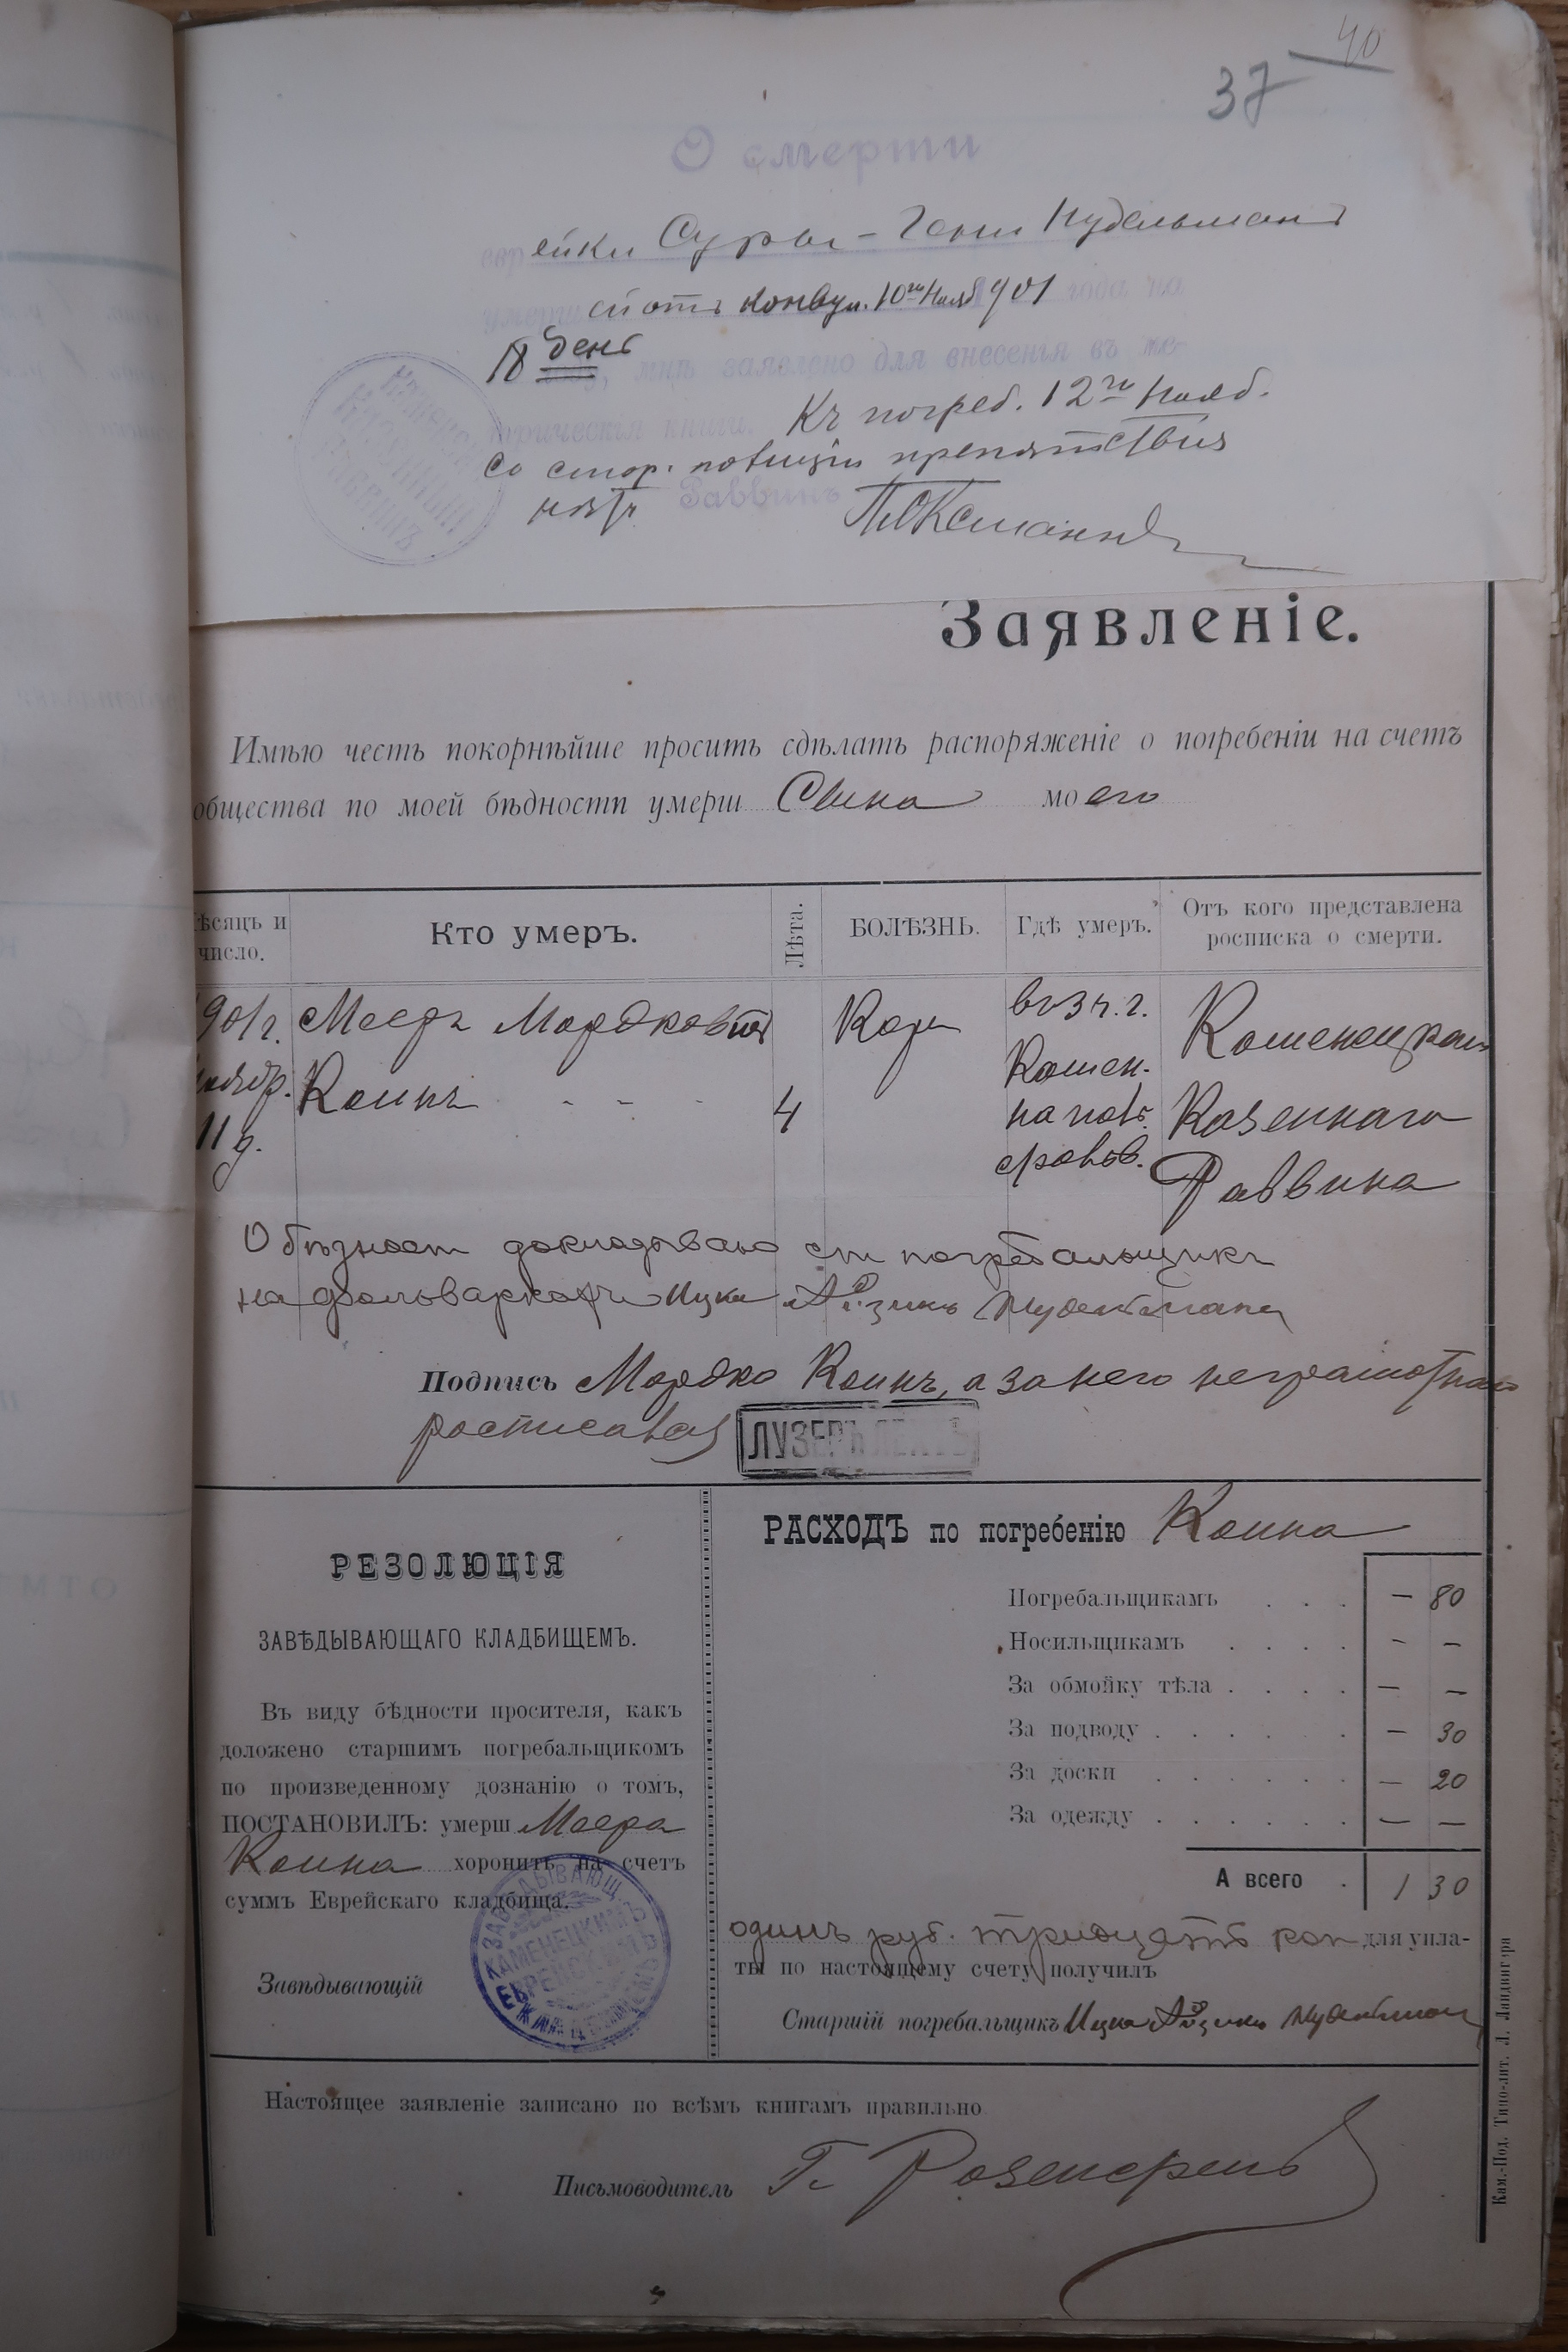 40
37
О смерти
еврейки Суры-Гени Нудельманъ
умершей отъ конвул. 10го Нояб 1901 года на
18 день, мнѣ заявлено для внесенія въ ме-
трическія книги. Къ погреб. 12го Нояб.
Со стор. полиціи препятствія
нѣтъ Раввинъ
Заявленіе.
Имѣю честь покорнѣйше просить сдѣлать распоряженіе о погребеніи на счетъ
общества по моей бѣдности умерш Сына моего
Мѣсяцъ и число.
Кто умеръ.
Лѣта.
БОЛѢЗНЬ.
Гдѣ умеръ.
Отъ кого представлена росписка о смерти.
1901 г. Нояб. 11 д.
Мееръ Мордковъ
Коинъ - - -
4
Кори
въ г.
Камен.
на пол.
фольв.
Каменецкаго
Казеннаго
Раввина
О бѣдност докладываю ст погребальщикъ
на фольваркахъ Ицко Айзикъ Нудельманъ
Подпись Мордко Коинъ, а за него неграмотнаго
росписался ЛУЗЕРЪ
РЕЗОЛЮЦІЯ
ЗАВѢДЫВАЮЩАГО КЛАДБИЩЕМЪ.
Въ виду бѣдности просителя, какъ
доложено старшимъ погребальщикомъ
по произведенному дознанію о томъ,
ПОСТАНОВИЛЪ: умерш Меера
Коина хоронить на счетъ
суммъ Еврейскаго кладбища.
Завѣдывающій
ЗАВѢДЫВАЮЩ. КАМЕНЕЦКИМЪ ЕВРЕЙСКИМЪ КЛАДБИЩЕМЪ
РАСХОДЪ по погребенію Коина
Погребальщикамъ . . . — 80
Носильщикамъ . . . . — —
За обмойку тѣла . . . . — —
За подводу . . . . . . — 30
За доски . . . . . . — 20
За одежду . . . . . . — —
А всего . 1 30
одинъ руб. тридцать коп для упла-
ты по настоящему счету получилъ
Старшій погребальщикъ Ицко Айзикъ Нудельман
Настоящее заявленіе записано по всѣмъ книгамъ правильно
Письмоводитель Г.
Кам.-Под. Типо-лит. Л. Ландвигера